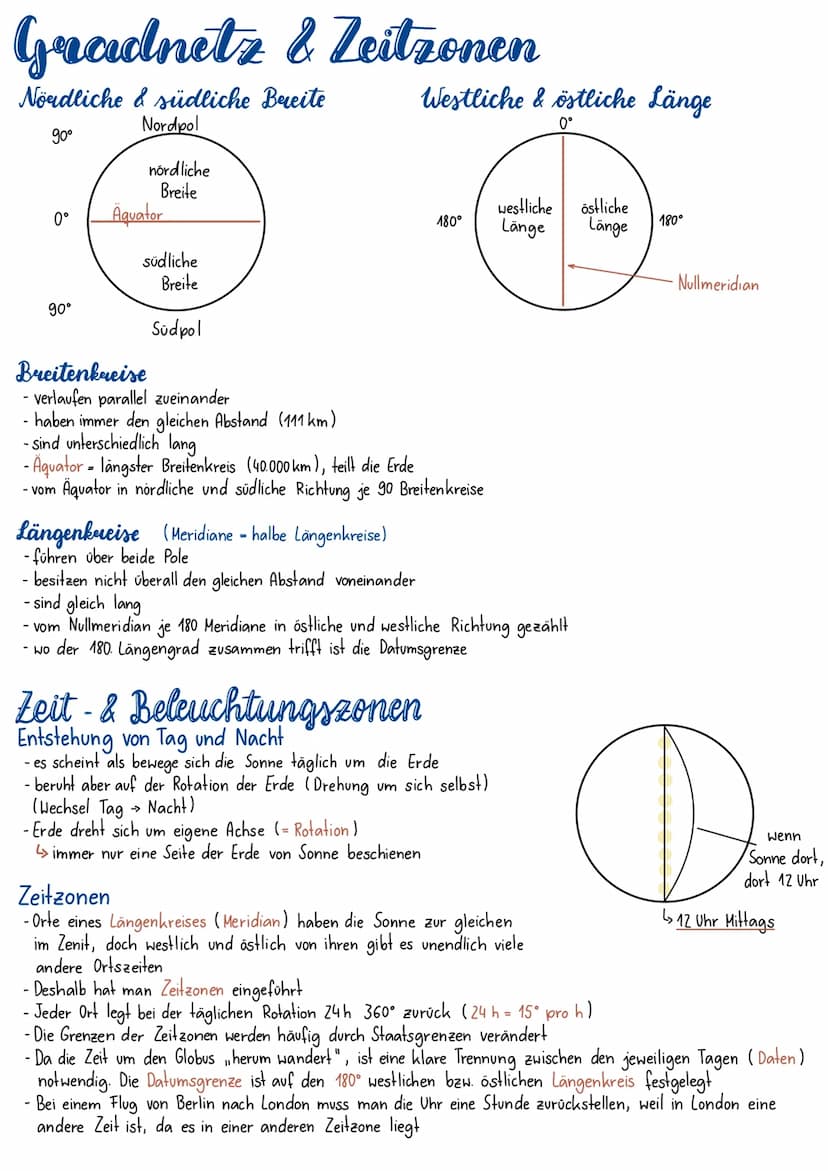 Gradnetz & Zeitzonen
Nördliche & südliche Breite
Westliche & östliche Länge
90°
Nordpol
nördliche
Breite
0°
Äquator
südliche
Breite
90°
Südpol
0°
180°
westliche
Länge
östliche
Länge
180°
Nullmeridian
Breitenkreise
- verlaufen parallel zueinander
- haben immer den gleichen Abstand (111 km)
- sind unterschiedlich lang
- Äquator = längster Breitenkreis (40.000 km), teilt die Erde
- vom Äquator in nördliche und südliche Richtung je 90 Breitenkreise
Längenkreise (Meridiane = halbe Längenkreise)
- führen über beide Pole
- besitzen nicht überall den gleichen Abstand voneinander
- sind gleich lang
- vom Nullmeridian je 180 Meridiane in östliche und westliche Richtung gezählt
- wo der 180. Längengrad zusammen trifft ist die Datumsgrenze
Zeit - & Beleuchtungszonen
Entstehung von Tag und Nacht
- es scheint als bewege sich die Sonne täglich um die Erde
- beruht aber auf der Rotation der Erde (Drehung um sich selbst)
(Wechsel Tag → Nacht)
- Erde dreht sich um eigene Achse (= Rotation)
↳ immer nur eine Seite der Erde von Sonne beschienen
wenn
Sonne dort,
dort 12 Uhr
↳ 12 Uhr Mittags
Zeitzonen
- Orte eines Längenkreises (Meridian) haben die Sonne zur gleichen
im Zenit, doch westlich und östlich von ihren gibt es unendlich viele
andere Ortszeiten
- Deshalb hat man Zeitzonen eingeführt
- Jeder Ort legt bei der täglichen Rotation 24h 360° zurück (24 h = 15° pro h)
- Die Grenzen der Zeitzonen werden häufig durch Staatsgrenzen verändert
- Da die Zeit um den Globus „herum wandert", ist eine klare Trennung zwischen den jeweiligen Tagen (Daten)
notwendig. Die Datumsgrenze ist auf den 180° westlichen bzw. östlichen Längenkreis festgelegt
- Bei einem Flug von Berlin nach London muss man die Uhr eine Stunde zurückstellen, weil in London eine
andere Zeit ist, da es in einer anderen Zeitzone liegt